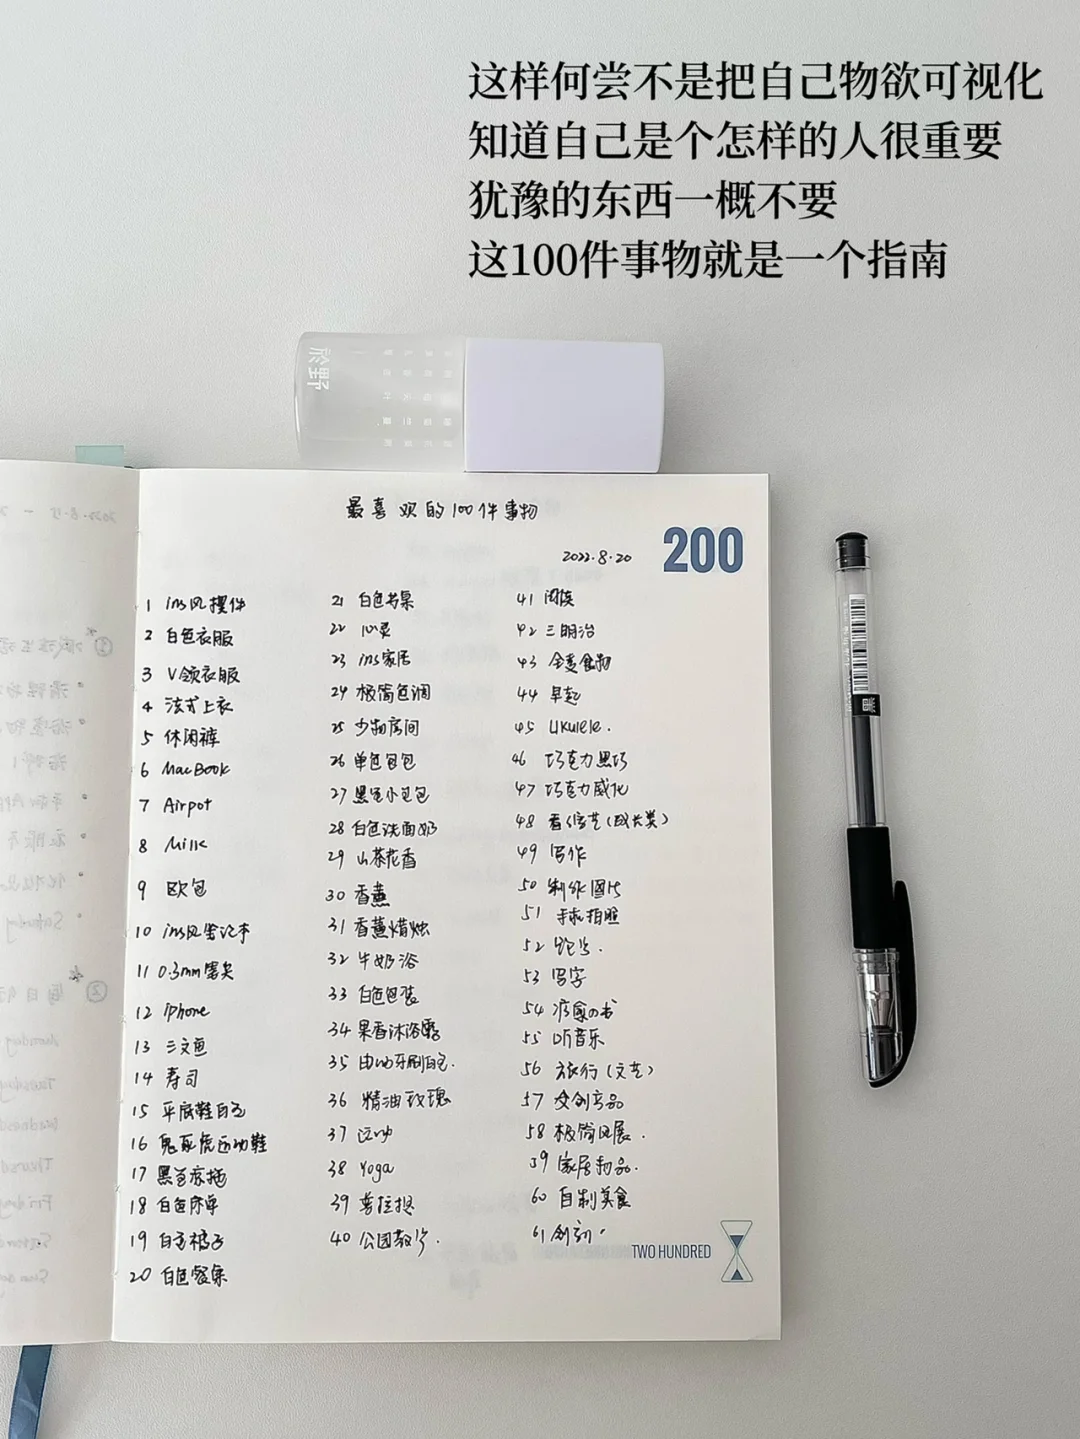 这样何尝不是把自己物欲可视化
知道自己是个怎样的人很重要
犹豫的东西一概不要
这100件事物就是一个指南
於野
最喜欢的100件事物
2022.8.20
200
1 ins风摆件
2 白色衣服
3 V领衣服
4 法式上衣
5 休闲裤
6 MacBook
7 Airpot
8 Milk
9 欧包
10 ins风笔记本
11 0.3mm笔尖
12 iphone
13 三文鱼
14 寿司
15 平底鞋白色
16 鬼冢虎运动鞋
17 黑色衣拖
18 白色床单
19 白色裙子
20 白色餐桌
21 白色书桌
22 心灵
23 ins家居
24 极简色调
25 少物房间
26 单色包包
27 黑色小包包
28 白色洗面奶
29 山茶花香
30 香薰
31 香薰蜡烛
32 牛奶浴
33 白色包装
34 果香沐浴露
35 电动牙刷白色.
36 精油玫瑰
37 运动
38 Yoga
39 普拉提
40 公园散步.
41 阅读
42 三明治
43 全麦食物
44 早起
45 Ukulele.
46 巧克力黑巧
47 巧克力威化
48 看综艺(成长类)
49 写作
50 制作图片
51 手机拍照
52 跑步.
53 写字
54 治愈の书
55 听音乐
56 旅行(文艺)
57 文创产品
58 极简风展.
59 家居物品.
60 自制美食
61
TWO HUNDRED